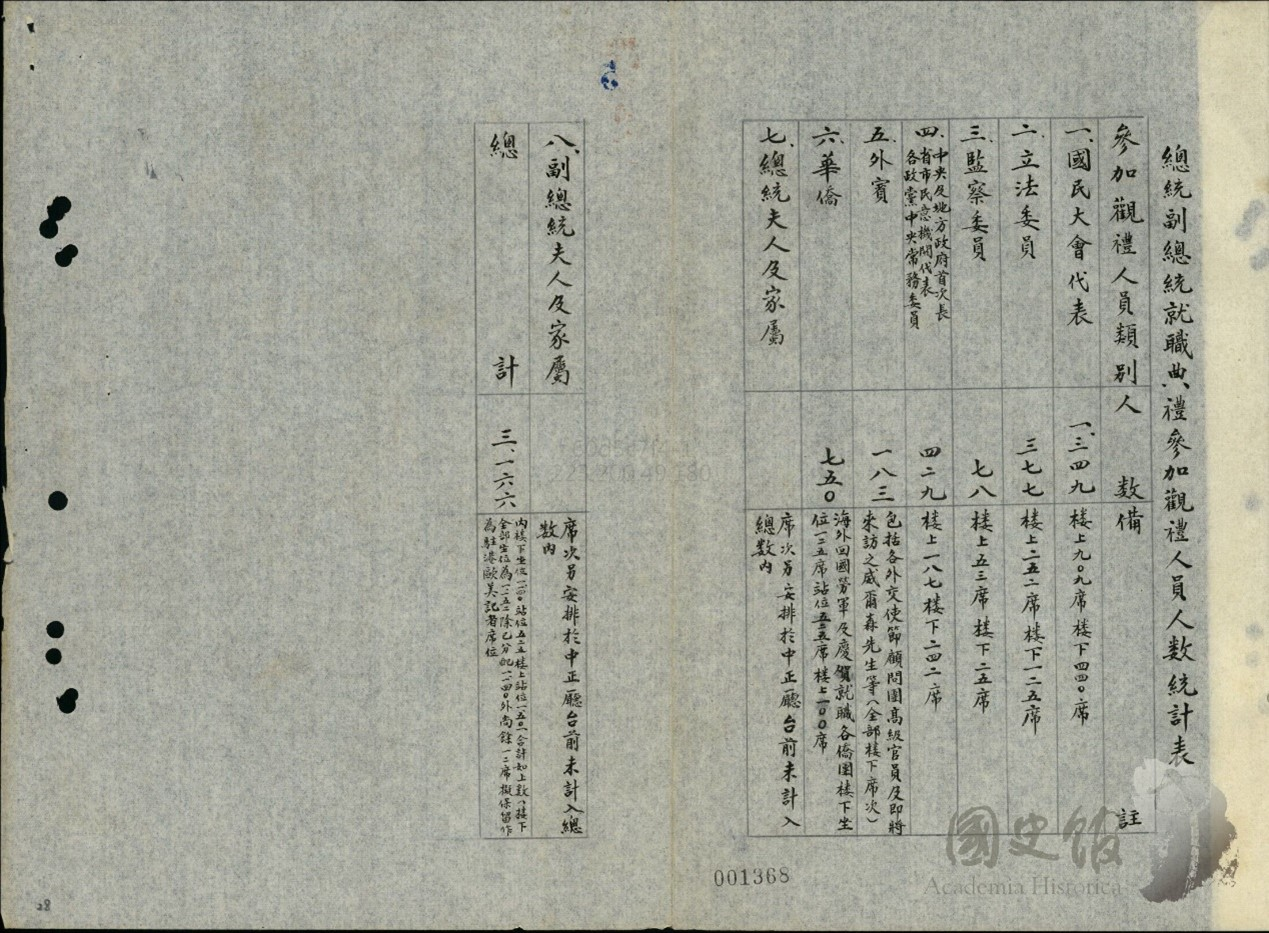 總統副總統就職典禮參加觀禮人員人数統計表
參加觀禮人員類別
人数
備註
一、國民大會代表
一、三四九
楼上九〇九席楼下四四〇席
二、立法委員
三七七
楼上二五二席楼下一二五席
三、監察委員
七八
楼上五三席楼下二五席
四、中央及地方政府首次長
省市民意機関代表
各政黨中央常務委員
四二九
楼上一八七楼下二四二席
五、外賓
一八三
包括各外交使節顧問團高級官員及即將
來訪之威爾森先生等(全部楼下席次)
六、華僑
七五〇
海外回國勞軍及慶賀就職各僑團楼下坐
位一二五席站位五二五席楼上一〇〇席
七、總統夫人及家屬
席次另安排於中正廳台前未計入
總数內
八、副總統夫人及家屬
席次另安排於中正廳台前未計入總
数內
總計
三、一六六
內楼下坐位一一四〇站位五二五楼上站位一五〇一合計如上数(楼下
全部坐位為一一五二除已分配一一四〇外尚餘一二席擬保留作
為駐港歐美記者席位
001368
國史館
Academia Historica
28